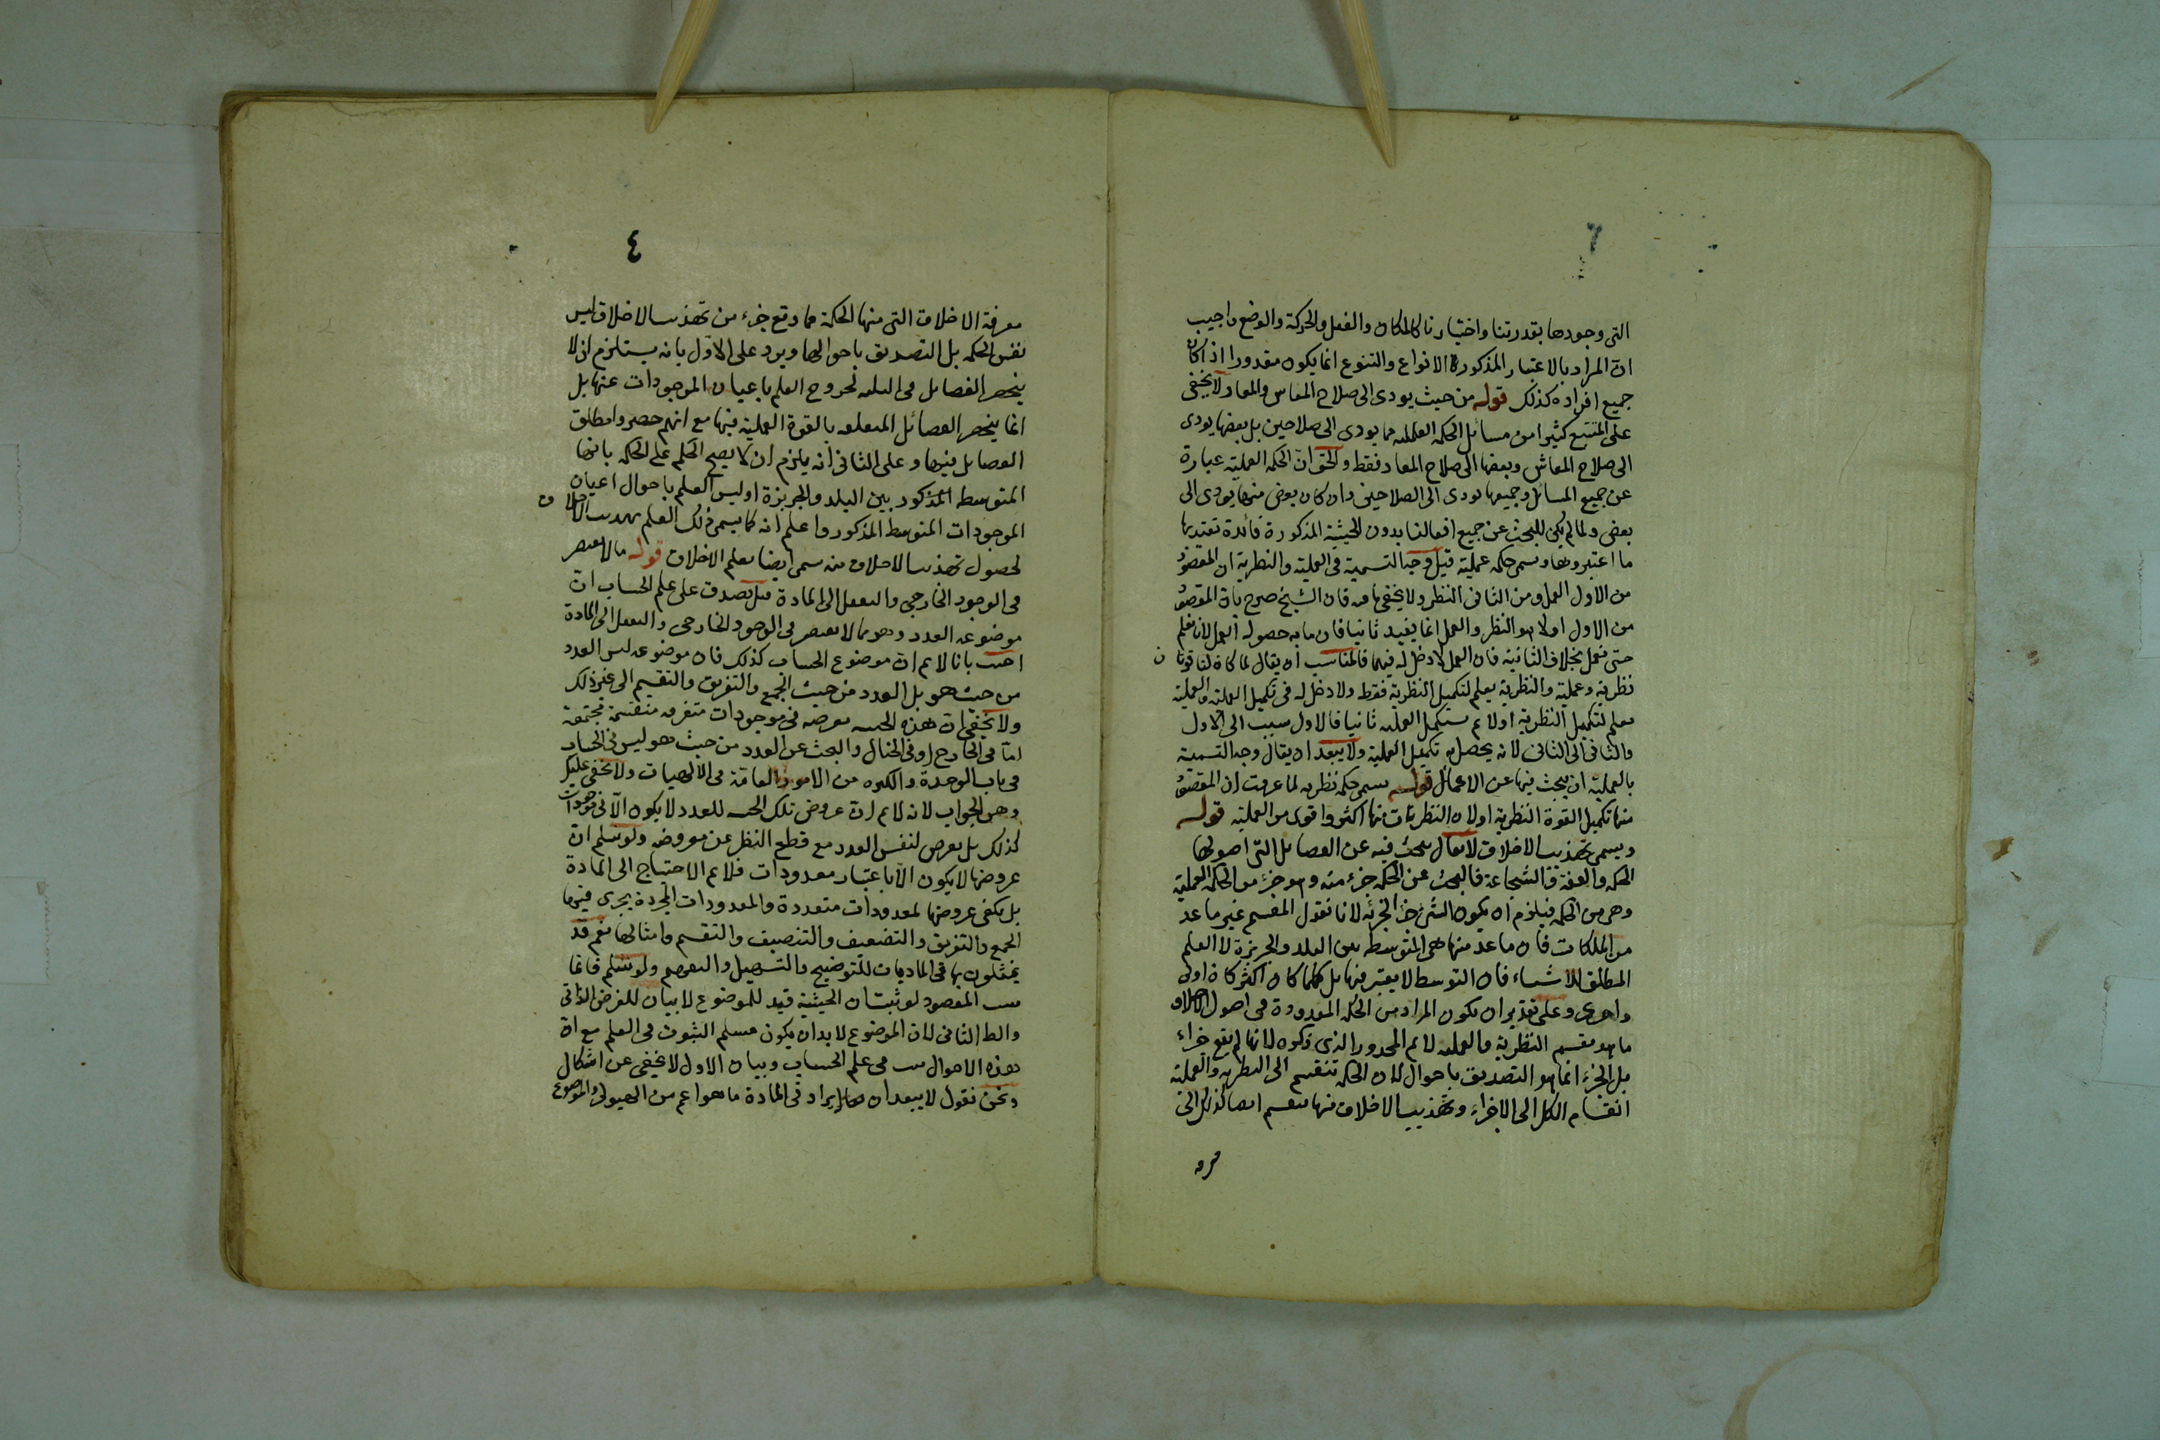 التى وجودها بقدرتنا واختيارنا كالمكان والفعل والحركة والوضع واجيب
ان المراد بالاعتبار المذكورة الانواع والتنوع انما يكون مقدورا اذا كان
جميع افراده كذلك قوله من حيث يودى الى صلاح المعاش والمعاد لا يخفى
على المتتبع كثيرا من مسائل الحكمة العملية مما يودى الى صلاحين بل بعضها يودى
الى صلاح المعاش وبعضها الى صلاح المعاد فقط والحق ان الحكمة العملية عبارة
عن جميع المسائل وجميعها يودى الى الصلاحين وان كان بعض منها يودى الى
بعض ولما لم يكن للبحث عن جميع افعالنا بدون الحيثية المذكورة فائدة تعتد بها
ما اعتبروها وسمى حكمة عملية قيل وجه التسمية فى العملية والنظرية ان المقصود
من الاول العمل ومن الثانى النظر ولا يخفى ما فيه فان الشيخ صرح بان المقصود
من الاول اولا هو النظر والعمل انما يفيد ثانيا فان ما به حصوله العمل لانا نعلم
حتى نعمل بخلاف الثانية فان العمل لا دخل له فيها فالمناسب ان يقال لما كان لنا قوتان
نظرية وعملية والنظرية يعلم لتكميل النظرية فقط ولا دخل له فى تكميل العملية والعملية
يعلم لتكميل النظرية اولا ثم يستكمل العملية ثانيا فالاول سبب الى الاول
والثانى الى الثانى لانه يحصل به تكميل العملية ولا يبعد ان يقال وجه التسمية
بالعملية ان يبحث فيها عن الاعمال قوله يسمى حكمة نظرية لما عرفت ان المقصود
منها تكميل القوة النظرية اولا ان النظريات منها اكثر واقوى من العملية قوله
ويسمى تهذيب الاخلاق لا يقال يبحث فيه عن الفضايل التى اصولها
الحكمة والعفة والشجاعة فالبحث عن الحكمة جزء منه وهو جزء من الحكمة العملية
وهى من الحكمة فيلزم ان يكون الشئ جزء لجزئه لانا نقول المقسم غير ما عد
من الملكات فان ما عد منها هى المتوسطة بين البلد والجربزة لا العلم
المطلق للاشياء فان التوسط لا يعتبر فيها بل كلما كان اكثر كان اولى
واحرى وعلى تقدير ان يكون المراد من الحكمة المعدودة فى اصول الاخلاق
ما هو مقسم النظرية والعملية لا تم المحدور الذى ذكره لانها لم يقع جزاء
بل الجزء انما هو التصديق باحوال لان الحكمة تنقسم الى النظرية والعملية
انقسام الكل الى الاجزاء وتهذيب الاخلاق منها منقسم ايضا كذلك التى
معرفة
٤
معرفة الاخلاق التى منها الحكمة مما وقع جزء من تهذيب الاخلاق ليس
نفس الحكمة بل التصديق باحوالها ويرد على الاول بانه يستلزم ان لا
ينحصر الفضايل فى الثلثة لخروج العلم باعيان الموجودات عنها بل
انما ينحصر الفضائل المتعلقة بالقوة العملية فيها مع انهم حصروا مطلق
الفضايل فيها وعلى الثانى انه يلزم ان لا يصح الحكم على الحكمة بانها
المتوسط المذكور بين البلد والجربزة اوليس العلم باحوال اعيان
الموجودات المتوسط المذكور واعلم انه كما يسمى ذلك العلم بتهذيب الاخلاق
لحصول تهذيب الاخلاق منه سمى ايضا بعلم الاخلاق قوله مالا يفتقر
فى الوجود الخارجى والتعقل الى المادة قيل يصدق على علم الحساب ان
موضوعه العدد وهو مما لا يفتقر فى الوجود الخارجى والتعقل الى المادة
اجيب بانا لا نم ان موضوع الحساب كذلك فان موضوعه ليس العدد
من حيث هو بل العدد من حيث الجمع والتفريق والتقسيم الى غير ذلك
ولا يخفى ان هذه الحيثية يعرضه فى موجودات متفرقة منقسمة مجتمعة
اما فى الخارج او فى الخيال والبحث عن العدد من حيث هو ليس فى الحساب
فى باب الوحدة والكثرة من الامور العامة فى الالهيات ولا يخفى عليك
وهن الجواب لانه لا نم ان عروض تلك الحيثية للعدد لا يكون الا فى موجودات
كذلك بل يعرض لنفس العدد مع قطع النظر عن معروضه ولو سلم ان
عروضها لا يكون الا باعتبار معدودات فلا نم الاحتياج الى المادة
بل يكفى عروضها لمعدودات متعددة والمعدودات المجردة يجرى فيها
الجمع والتفريق والتضعيف والتنصيف والتقسيم وامثالها نعم قد
يمثلون بها فى الماديات للتوضيح والتسهيل والتفهيم ولو سلم فانما
يثبت المقصود لو ثبت ان الحيثية قيد للموضوع لا بيان للعرض الذاتى
والظ الثانى لان الموضوع لا بد ان يكون مسلم الثبوت فى العلم مع ان
هذه الاحوال يثبت فى علم الحساب وبيان الاول لا يخفى عن اشكال
ونحن نقول لا يبعد ان يقال المراد فى المادة ما هو اعم من الهيولى والموضوع